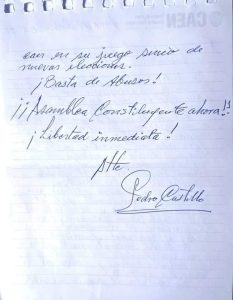 CAEN
caer en su juego sucio de
nuevas elecciones.
¡Basta de Abusos!
¡¡Asamblea Constituyente ahora!!
¡Libertad inmediata!
Atte.
Pedro Castillo